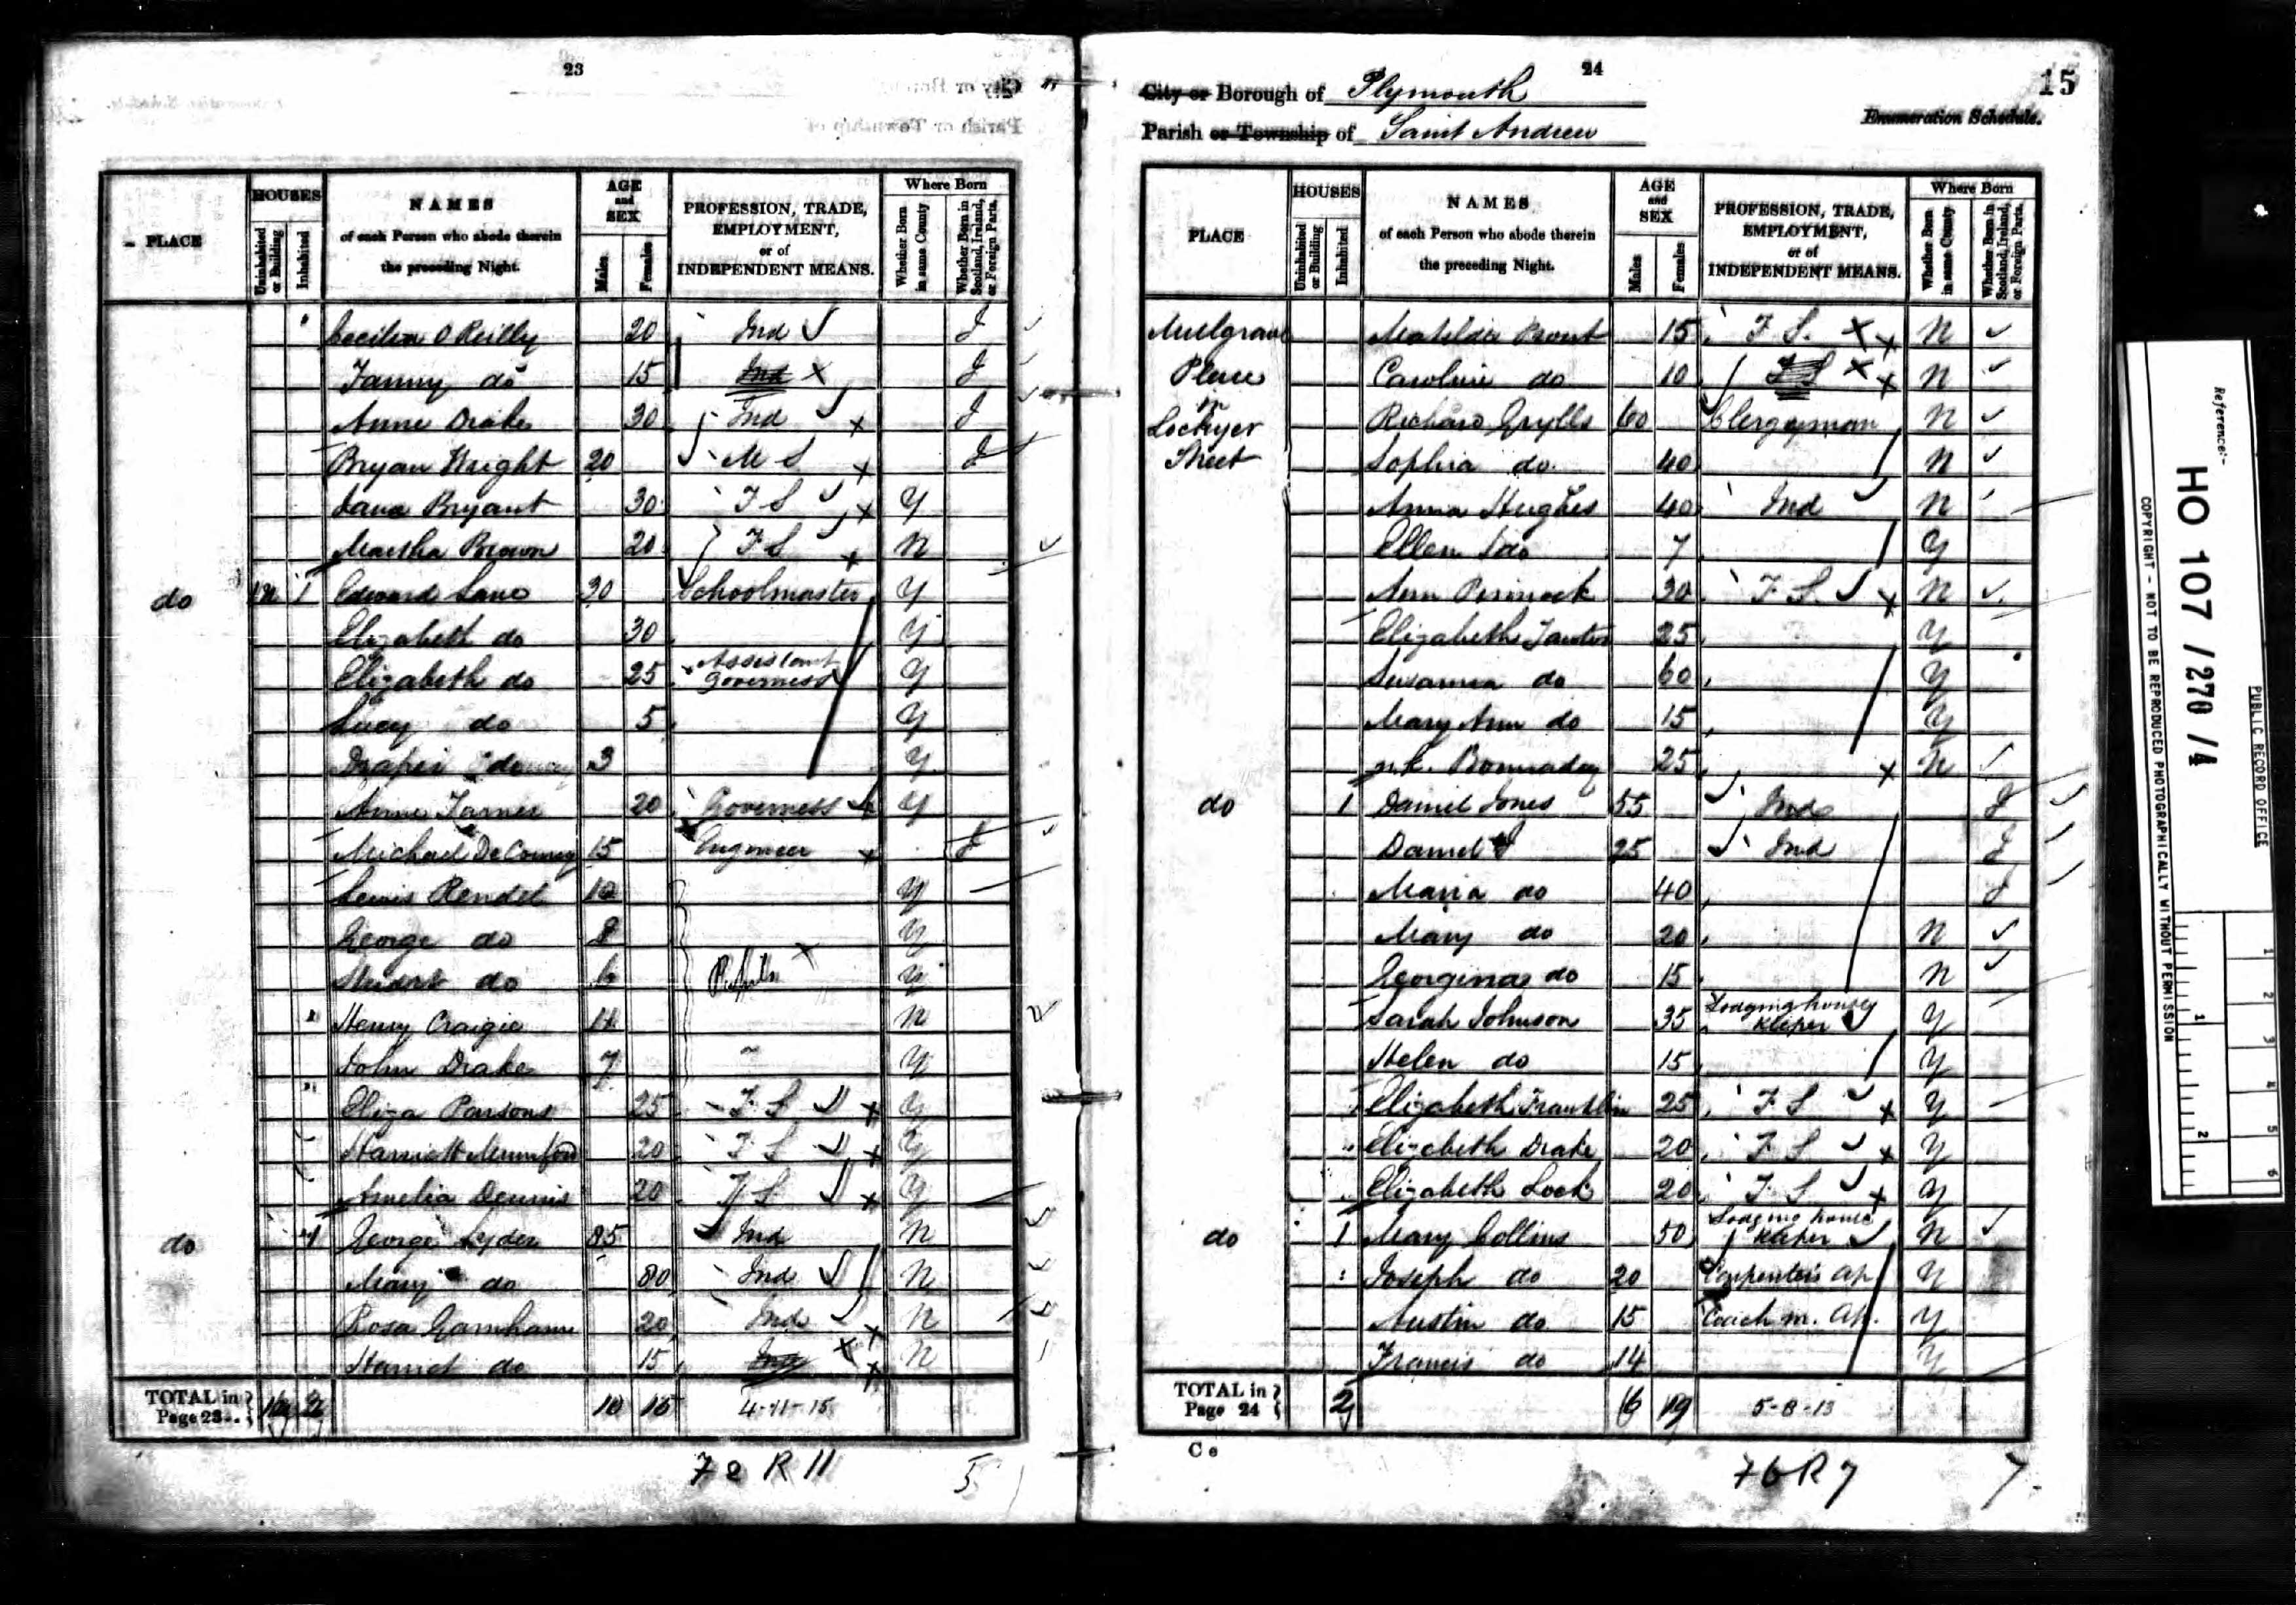 23
PLACE
HOUSES
Uninhabited or Building
Inhabited
NAMES
of each Person who abode therein
the preceding Night.
AGE
and
SEX
Males
Females
PROFESSION, TRADE,
EMPLOYMENT,
or of
INDEPENDENT MEANS.
Where Born
Whether Born in same County
Whether Born in Scotland, Ireland, or Foreign Parts.
Cecilia O Reilly 20 Ind I
Fanny do 15 Ind I
Anne Drake 30 Ind I
Bryan Wright 20 M S I
Jane Bryant 30 F S Y
Martha Brown 20 F S N
do 1 Edward Lane 30 Schoolmaster Y
Elizabeth do 30 Y
Elizabeth do 25 Assistant Governess Y
Lucy do 5 Y
Draper 3 Y
Anne 20 Governess Y
Michael De Courcy 15 Engineer I
Lewis Rendel 10 Y
George do 8 Y
do 6 Pupils Y
Henry Craigie 11 N
John Drake 7 Y
Eliza Parsons 25 F S Y
Harriett Mumford 20 F S Y
Amelia Dennis 20 F S Y
do 1 George Lyder 85 Ind N
Mary do 80 Ind N
Rosa Garnham 20 Ind N
Harriet do 15 Ind N
TOTAL in Page 23 10 15 4-11-15
72 R 11 5
24
15
City or Borough of Plymouth
Parish or Township of Saint Andrew
Enumeration Schedule.
PLACE
HOUSES
Uninhabited or Building
Inhabited
NAMES
of each Person who abode therein
the preceding Night.
AGE
and
SEX
Males
Females
PROFESSION, TRADE,
EMPLOYMENT,
or of
INDEPENDENT MEANS.
Where Born
Whether Born in same County
Whether Born in Scotland, Ireland, or Foreign Parts.
Mulgrave Matilda Prout 15 F S. N
Place Caroline do 10 F S N
in Lockyer Richard Grylls 60 Clergyman N
Street Sophia do 40 N
Anna Hughes 40 Ind N
Ellen do 7 Y
Ann Pennock 30 F S. N
Elizabeth 25 Y
Susanna do 60 Y
Mary Ann do 15 Y
n.k. 25 N
do 1 Daniel Jones 55 Ind I
Daniel 25 Ind I
Maria do 40 I
Mary do 20 N
Georginas do 15 N
Sarah Johnson 35 Lodging house Keeper Y
Helen do 15 Y
Elizabeth Franklin 25 F S Y
Elizabeth Drake 20 F S Y
Elizabeth Lock 20 F S Y
do 1 Mary Collins 50 Lodging house Keeper N
Joseph do 20 Carpenters Ap Y
Austin do 15 Coach m. Ap. Y
Francis do 14 Y
TOTAL in Page 24 2 6 19 5-8-13
C e
76 R 7 7
Reference:-
HO 107 /270 /4
PUBLIC RECORD OFFICE
COPYRIGHT - NOT TO BE REPRODUCED PHOTOGRAPHICALLY WITHOUT PERMISSION
1
2
1 2 3 4 5 6